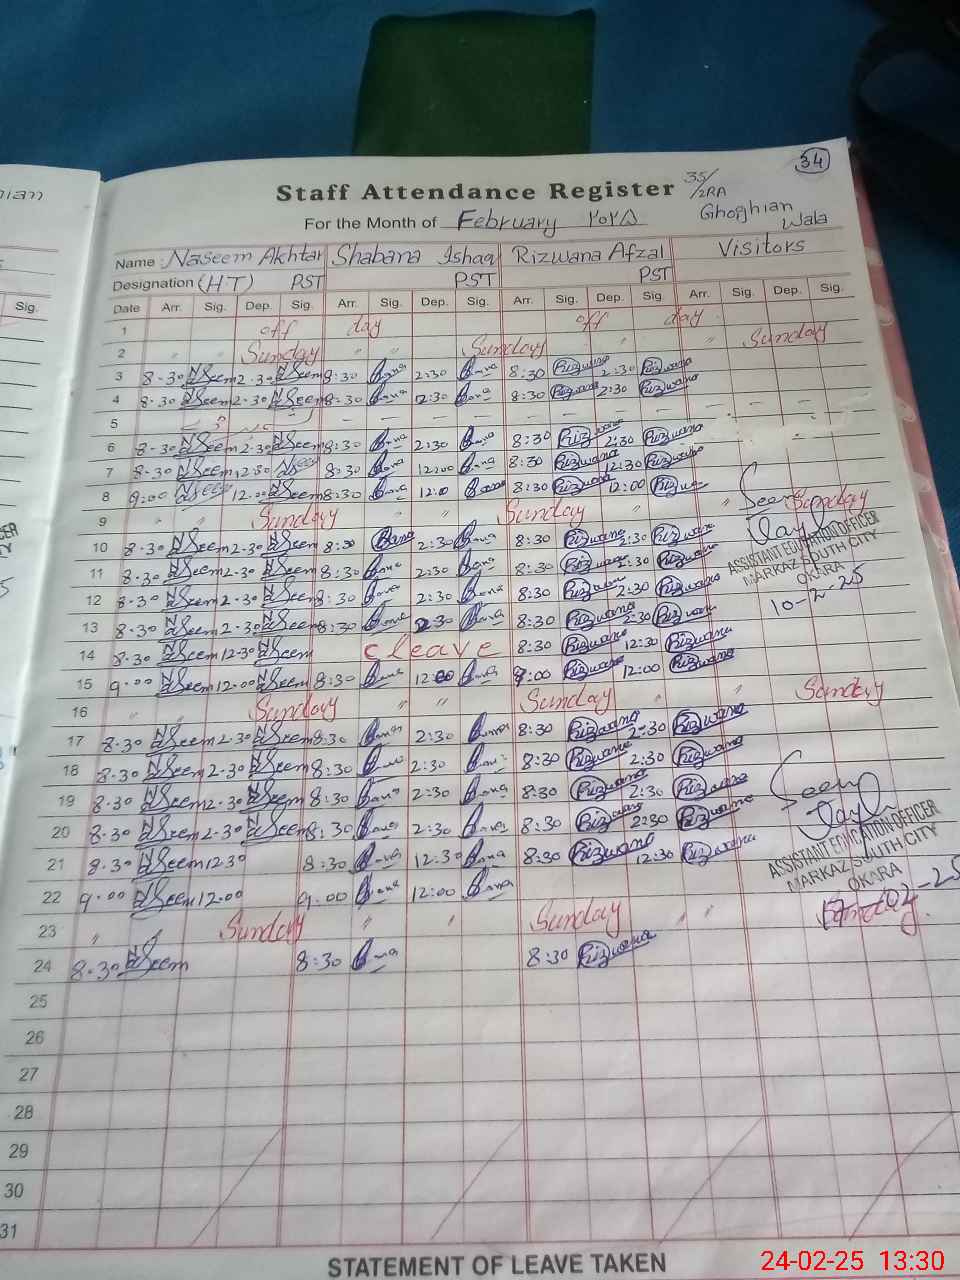 34
Staff Attendance Register 35/2RA
For the Month of February ۲۰۲۵ Ghoghian Wala
Name : Naseem Akhtar Shabana Ishaq Rizwana Afzal Visitors
Designation (H.T) PST PST PST
Date Arr. Sig. Dep. Sig. Arr. Sig. Dep. Sig. Arr. Sig. Dep. Sig. Arr. Sig. Dep. Sig.
1 off day off day
2 " " Sunday " " Sunday " " " Sunday
3 8-30 NSeem 2-30 NSeem 8:30 2:30 8:30 Rizwana 2:30 Rizwana
4 8-30 NSeem 2-30 NSeem 8:30 2:30 8:30 Rizwana 2:30 Rizwana
5
6 8-30 NSeem 2-30 NSeem 8:30 2:30 8:30 Rizwana 2:30 Rizwana
7 8-30 NSeem 12:30 NSeem 8:30 12:00 8:30 Rizwana 12:30 Rizwana
8 9:00 NSeem 12-00 NSeem 8:30 12:00 8:30 Rizwana 12:00 Rizwana
9 " " Sunday " " Sunday " " Sunday
Seen
10 8-30 NSeem 2-30 NSeem 8:30 2:30 8:30 Rizwana 2:30 Rizwana
ASSISTANT EDUCATION OFFICER
11 8-30 NSeem 2-30 NSeem 8:30 2:30 8:30 Rizwana 2:30 Rizwana
MARKAZ SOUTH CITY
OKARA
12 8-30 NSeem 2-30 NSeem 8:30 2:30 8:30 Rizwana 2:30 Rizwana
10-2-25
13 8-30 NSeem 2-30 NSeem 8:30 2:30 8:30 Rizwana 2:30 Rizwana
14 8-30 NSeem 12-30 NSeem c leave 8:30 Rizwana 12:30 Rizwana
15 9-00 NSeem 12-00 NSeem 8:30 12:00 9:00 Rizwana 12:00 Rizwana
16 " " Sunday " " Sunday " " Sunday
17 8-30 NSeem 2-30 NSeem 8:30 2:30 8:30 Rizwana 2:30 Rizwana
18 8-30 NSeem 2-30 NSeem 8:30 2:30 8:30 Rizwana 2:30 Rizwana
19 8-30 NSeem 2-30 NSeem 8:30 2:30 8:30 Rizwana 2:30 Rizwana
Seen
20 8-30 NSeem 2-30 NSeem 8:30 2:30 8:30 Rizwana 2:30 Rizwana
ASSISTANT EDUCATION OFFICER
21 8-30 NSeem 12-30 8:30 12:30 8:30 Rizwana 12:30 Rizwana
MARKAZ SOUTH CITY
OKARA
22 9-00 NSeem 12-00 9:00 12:00
23 " " Sunday " " Sunday " " Sunday
24 8-30 NSeem 8:30 8:30 Rizwana
25
26
27
28
29
30
31
STATEMENT OF LEAVE TAKEN
24-02-25 13:30